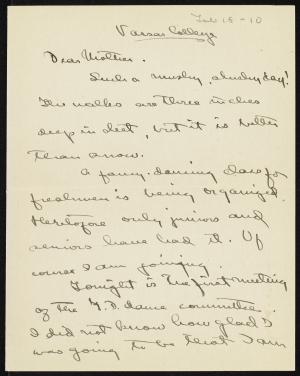 Feb 18-10
Vassar College
Dear Mother.
Such a mushy, slushy day!
The walks are three inches
deep in sleet, but it is better
than snow.
A fancy-dancing class for
freshmen is being organized.
Heretofore only juniors and
seniors have had it. Of
course I am joining.
Tonight is the first meeting
of the F. D. dance committee.
I did not know how glad I
was going to be that I am